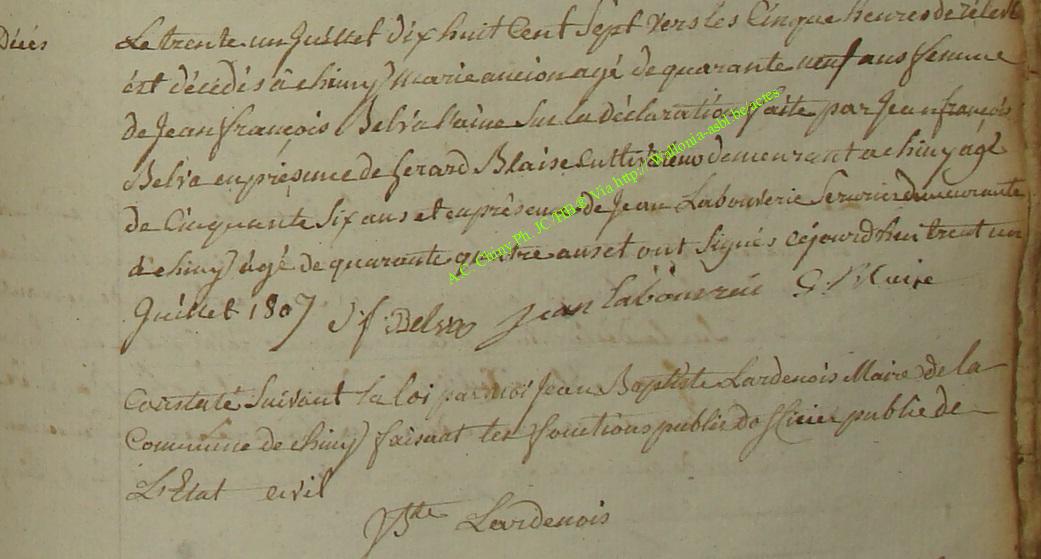 Décès
Le trente un Juillet dix huit Cent Sept vers les Cinque heures de relevé
ést décédés à chiny marie ancion agé de quarante neuf ans femme
de Jean françois Belva l'aine Sur la déclaration faite par Jean françois
Belva en présence de Gerard Blaise Cultivateur demeurant a chiny agé
de Cinquante Six ans et en présence de Jean Labouverie Serurier demeurante
à chiny agé de quarante quattre ans et ont Signés cejourdhui trent un
Juillet 1807 J f Belva Jean labouverie G. Blaise
Constaté Suivant la loi par moi Jean Baptiste Lardenois Maire de la
Commune de chiny faisant les fonctions public dofficier public de
L'Etat civil
JBte Lardenois
A.C. Chiny Ph. JC /HB @ Via http://Wallonia-asbl.be/actes